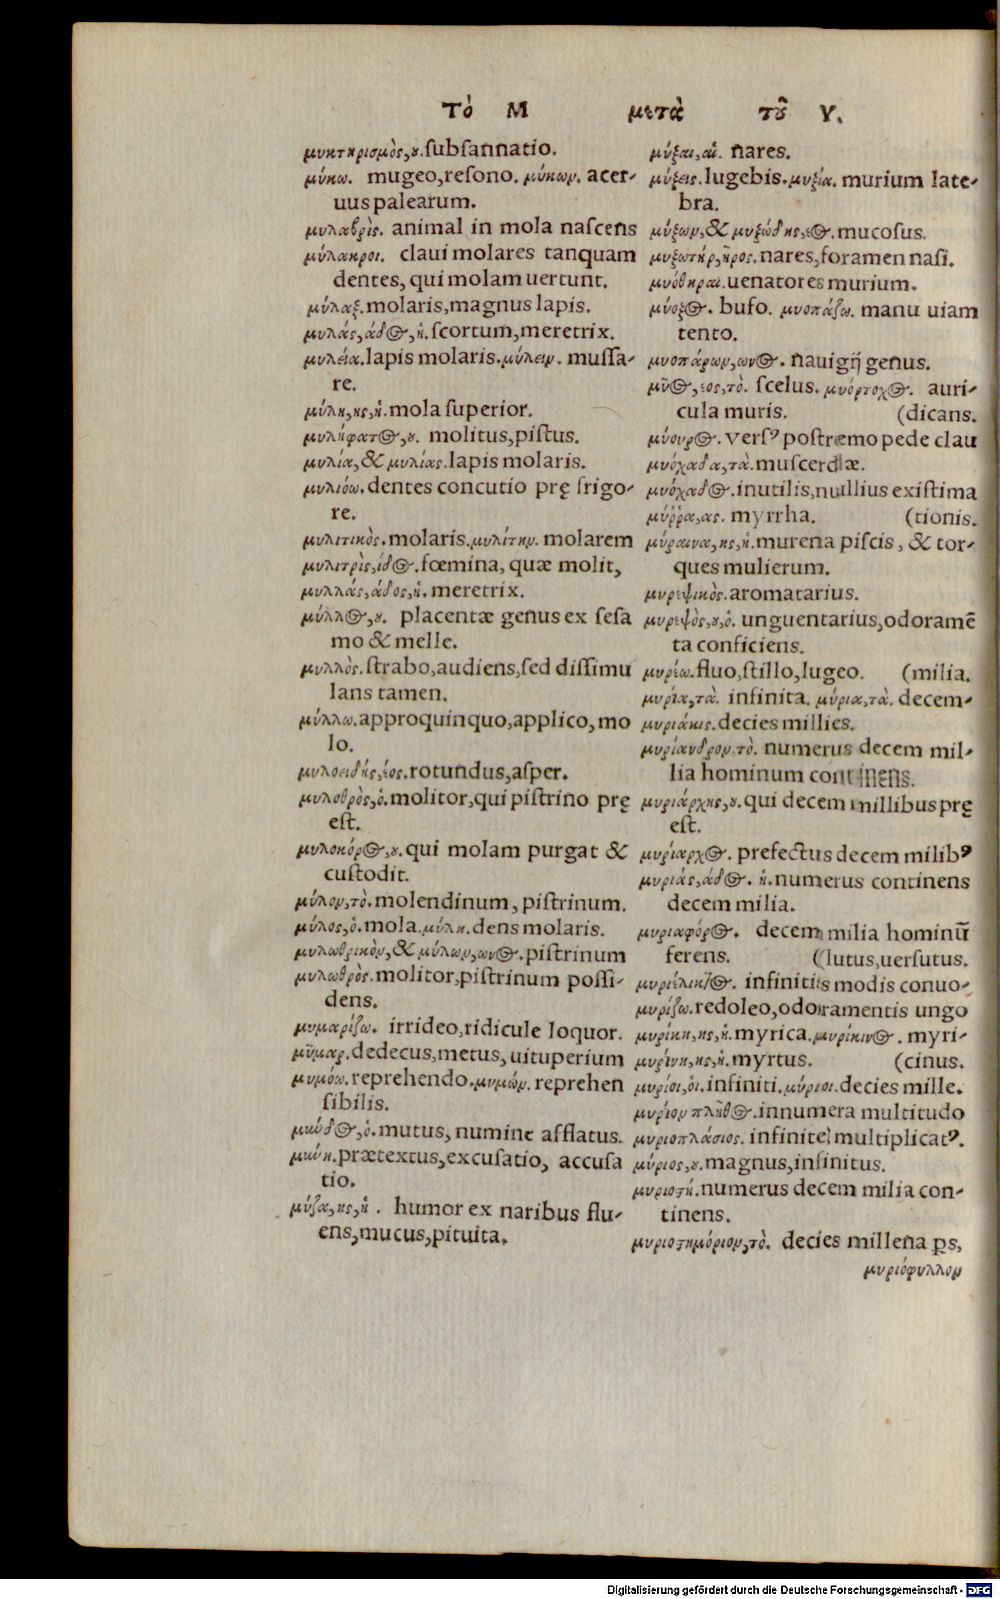 Τὸ Μ μετὰ τοῦ Υ.
μυκτηρισμὸς,ου. subsannatio.
μύκω. mugeo,resono. μύκων. acer-
uus palearum.
μυλαβρὶς. animal in mola nascens
μύλακροι. claui molares tanquam
dentes, qui molam uertunt.
μύλαξ. molaris,magnus lapis.
μυλάς,άδος,ἡ. scortum,meretrix.
μυλεία. lapis molaris. μύλειν. mussa-
re.
μύλη,ης,ἡ. mola superior.
μυλήφατος,ου. molitus,pistus.
μυλία,& μυλίας. lapis molaris.
μυλιόω. dentes concutio prę frigo-
re.
μυλιτικὸς. molaris. μυλίτην. molarem
μυλιτρὶς,ίδος. fœmina, quæ molit,
μυλλάς,άδος,ἡ. meretrix.
μύλλος,ου. placentæ genus ex sesa
mo & melle.
μυλλὸς. strabo,audiens,sed dissimu
lans tamen.
μύλλω. approquinquo,applico,mo
lo.
μυλοειδής,έος. rotundus,asper.
μυλοθρὸς,ὁ. molitor,qui pistrino prę
est.
μυλοκόρος,ου. qui molam purgat &
custodit.
μύλον,τὸ. molendinum, pistrinum.
μύλος,ὁ. mola. μύλη. dens molaris.
μυλωθρικὸν,& μύλων,ωνος. pistrinum
μυλωθρὸς. molitor,pistrinum possi-
dens.
μυμαρίζω. irrideo,ridicule loquor.
μῦμαρ. dedecus,metus,uituperium
μυμόω. reprehendo. μυμών. reprehen
sibilis.
μύνδος,ὁ. mutus, numine afflatus.
μύνη. prætextus,excusatio, accusa
tio.
μύξα,ης,ἡ. humor ex naribus flu-
ens,mucus,pituita.
μύξαι,αἱ. nares.
μύξεις. lugebis. μυξία. murium late-
bra.
μύξων,& μυξώδης,εος. mucosus.
μυξωτήρ,ῆρος. nares,foramen nasi.
μυόθηραι. uenatores murium.
μύοξος. bufo. μυοπάζω. manu uiam
tento.
μυοπάρων,ωνος. nauigij genus.
μῦος,εος,τὸ. scelus. μυόρτοχος. auri-
cula muris. (dicans.
μύουρος. versꝰ postremo pede clau
μυόχαδα,τὰ. muscerdæ.
μυόχαδος. inutilis,nullius existima
μύῤῥα,ας. myrrha. (tionis.
μύραινα,ης,ἡ. murena piscis, & tor-
ques mulierum.
μυρεψικὸς. aromatarius.
μυρεψὸς,οῦ,ὁ. unguentarius,odoramē
ta conficiens.
μυρέω. fluo,stillo,lugeo. (milia.
μυρία,τὰ. infinita. μύρια,τὰ. decem-
μυριάκις. decies millies.
μυρίανδρον,τὸ. numerus decem mil-
lia hominum continens.
μυριάρχης,ου. qui decem millibus prę
est.
μυρίαρχος. prefectus decem milibꝰ
μυριάς,άδος. ἡ. numerus continens
decem milia.
μυριαφόρος. decem milia hominū
ferens. (lutus,uersutus.
μυριέλικτος. infinitis modis conuo-
μυρίζω. redoleo,odoramentis ungo
μυρίκη,ης,ἡ. myrica. μυρίκινος. myri-
μυρίνη,ης,ἡ. myrtus. (cinus.
μυρίοι,οἱ. infiniti. μύριοι. decies mille.
μυρίον πλῆθος. innumera multitudo
μυριοπλάσιος. infinite multiplicatꝰ.
μύριος,ου. magnus,infinitus.
μυριοστή. numerus decem milia con-
tinens.
μυριοστημόριον,τὸ. decies millena ꝑs,
μυριόφυλλον
Digitalisierung gefördert durch die Deutsche Forschungsgemeinschaft - DFG